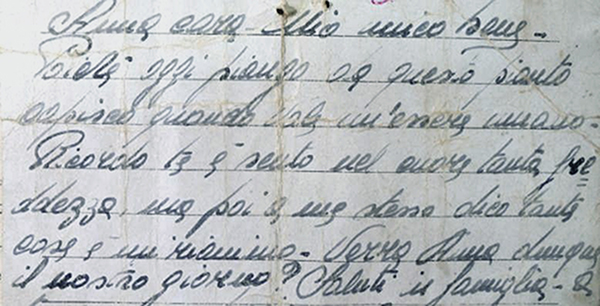 Anna cara - Mio unico bene -
Poichè oggi piango da questo pianto
capisco quando vale un'essere umano -
Ricordo te e sento nel cuore tanta fre
ddezza, ma poi a me stesso dico tante
cose e mi rianimo - Verrà Anna dunque
il nostro giorno? Saluti in famiglia - a